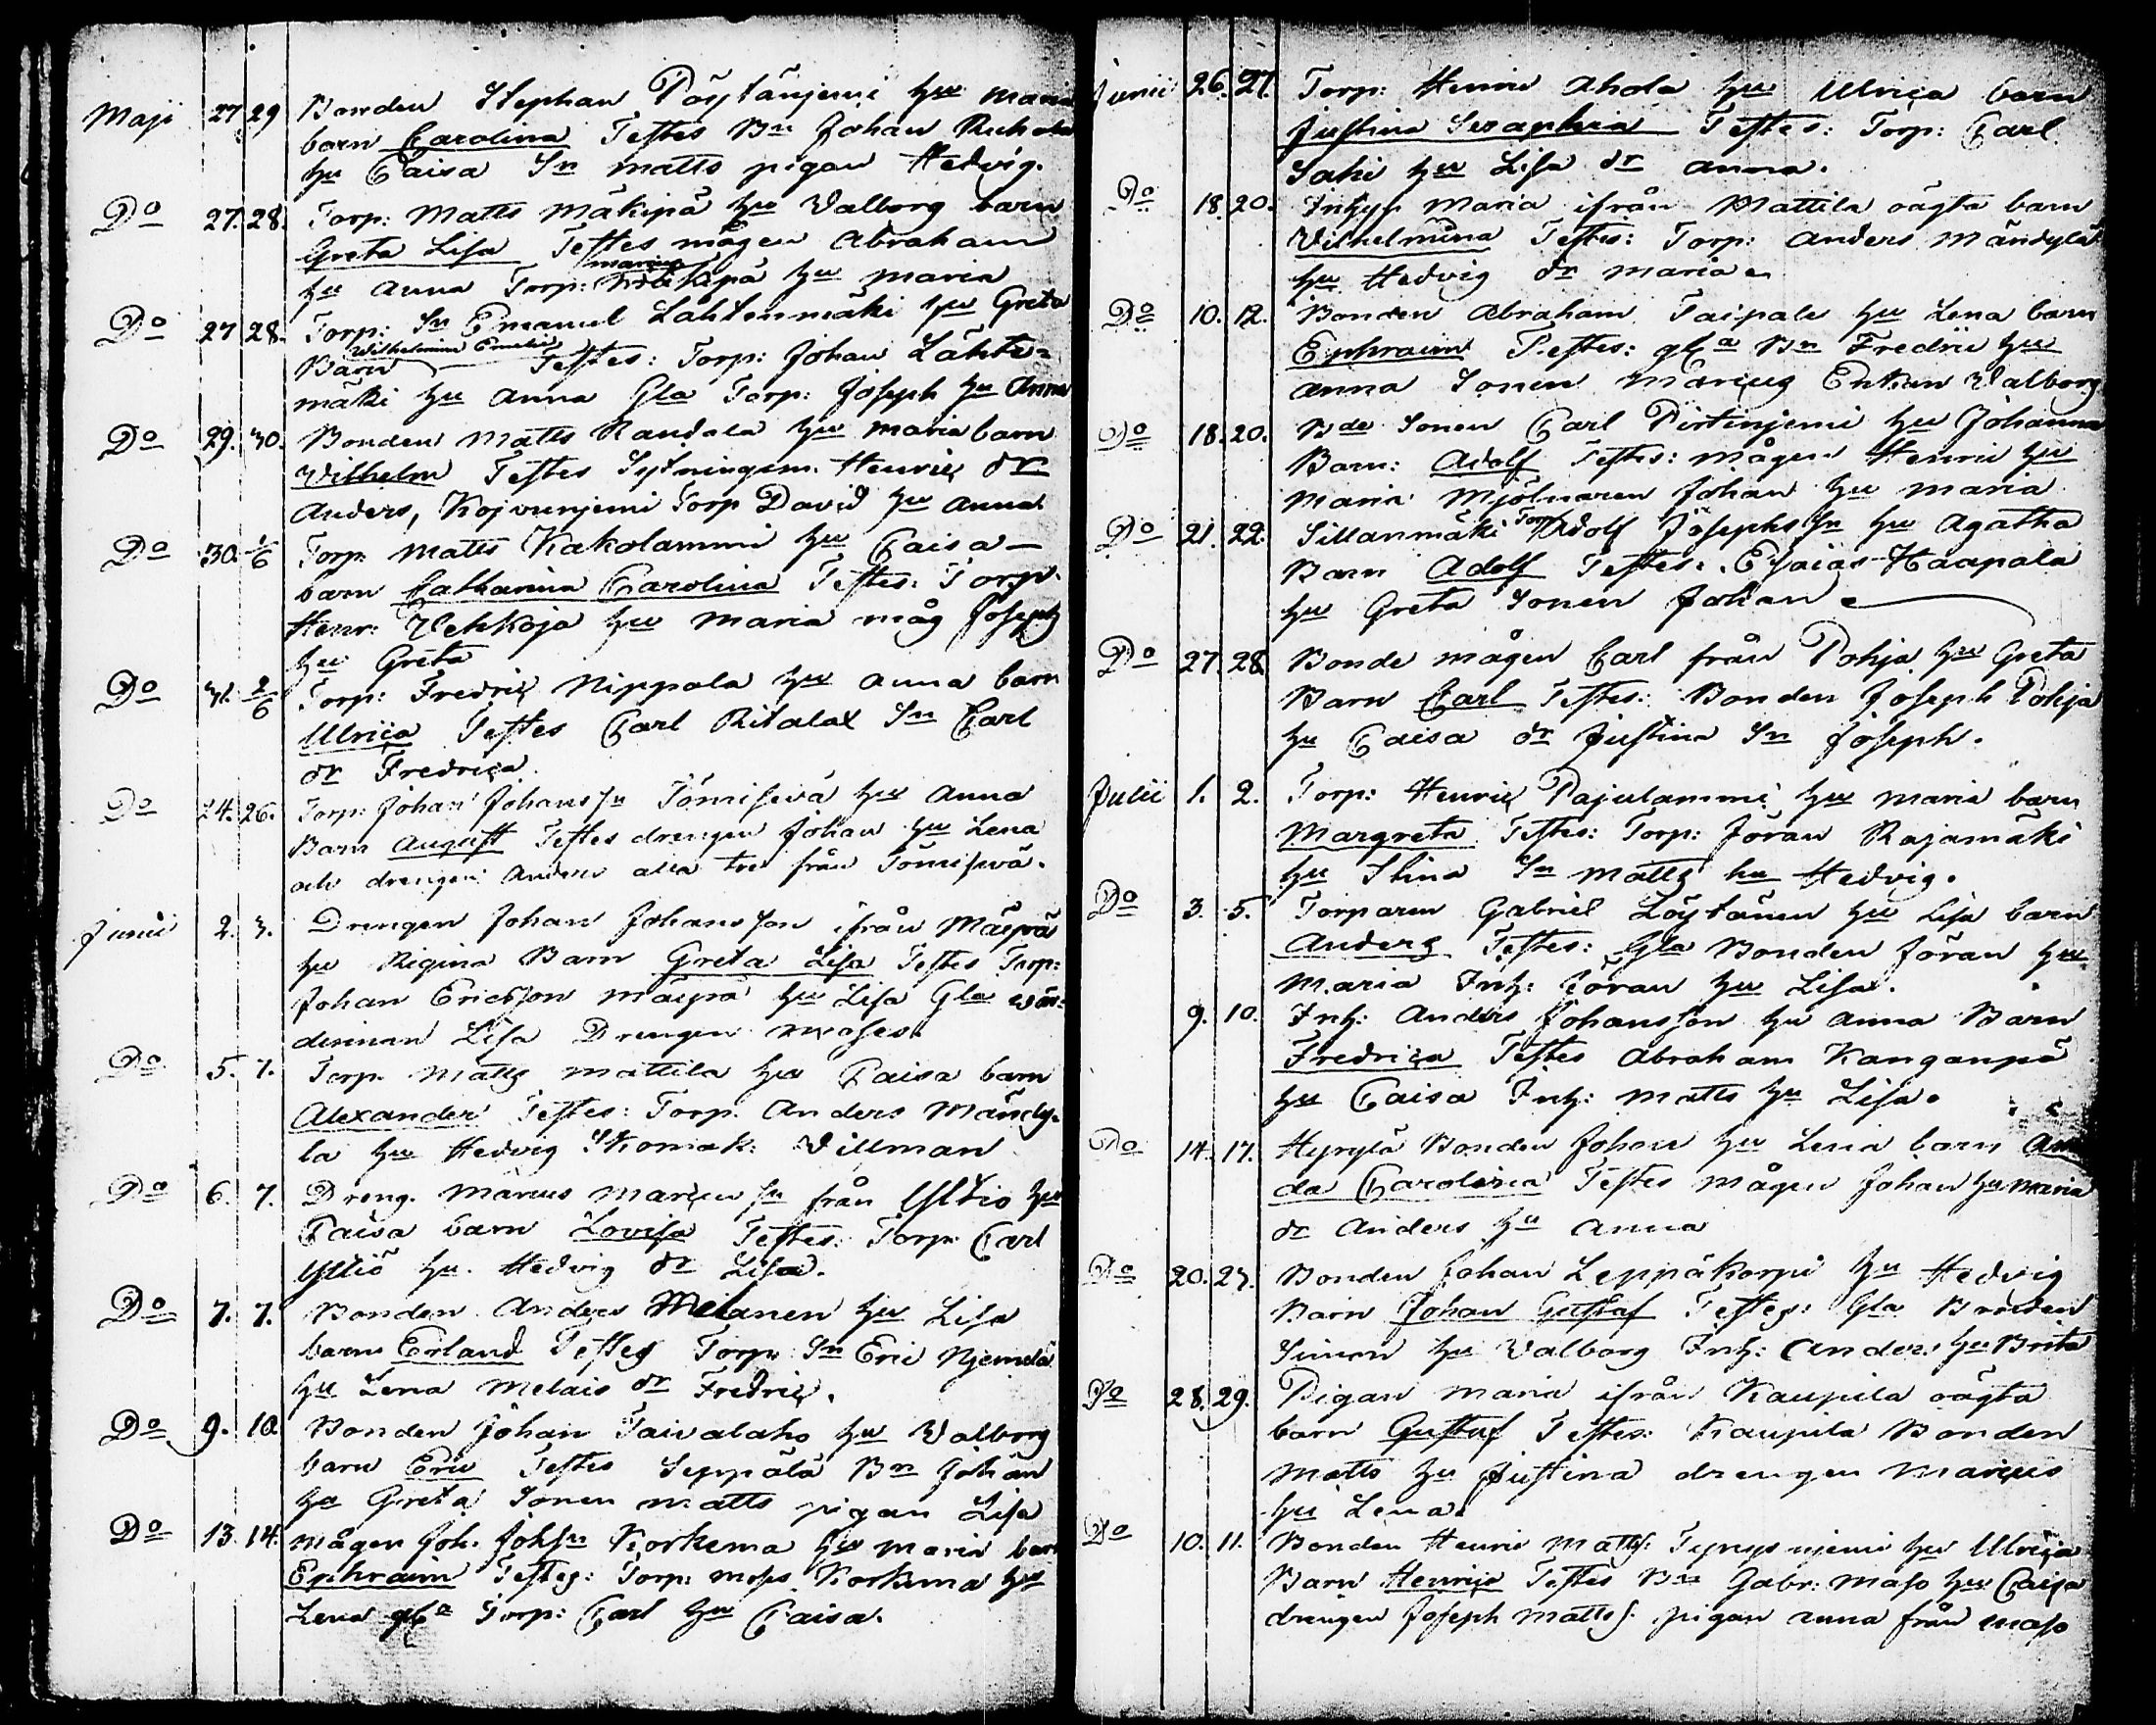 Maji 27 29 Bonden Stephan Pöytänjemi hu Maria
barn Carolina Testes Bn Johan Ruhola
hu Caisa Sn Matts pigan Hedvig.
Do 27. 28. Torp: Matts Mäkipä hu Valborg barn
Greta Lisa Testes mågen Abraham
hu Anna Torp: Marcus Mäkipä hu Maria
Do 27 28. Torp: Sn Emanuel Lähtenmäki hu Greta
Barn Wilhelmina Emelie Testes: Torp: Johan Lähte-
mäki hu Anna Gla Torp: Joseph hu Anna
Do 29. 30. Bonden Matts Randala hu Maria barn
Wilhelm Testes Sytningsm. Henric dr
Anders, Kojvunjemi Torp David hu Anna
Do 30. 1/6 Torp. Matts Kakolammi hu Caisa—
barn Catharina Carolina Testes: Torp.
Henr: Vehkoja hu Maria måg Joseph
hu Greta
Do 31. 2/6 Torp: Fredric Nippala hu Anna barn
Ulrica Testes Carl Ritalax Sn Carl
dr Fredrica
Do 24. 26. Torp: Johan Johanssn Tömisevä hu Anna
Barn August Testes drengen Johan hu Lena
och drengen Anders alla tre från Tömisevä.
Junii 2. 3. Drengen Johan Johansson ifrån Mäepä
hu Regina Barn Greta Lisa Testes Torp:
Johan Ericsson Mäepä hu Lisa Gla wär-
dinnan Lisa Drengen Moses.
Do 5. 7. Torp. Matts Mattila hu Caisa barn
Alexander Testes: Torp. Anders Mändy-
la hu Hedvig Skomak: Villman
Do 6. 7. Dreng. Marcus Marcussn från Yltiö hu
Caisa barn Lovisa Testes: Torp: Carl
Yltiö hu. Hedvig dr Lisa.
Do 7. 7. Bonden Anders Melanen hu Lisa
barn Erland Testes Torp: Sn Eric Njemelä
hu Lena Melais dr Fredric.
Do 9. 10. Bonden Johan Taivalaho hu Valborg
barn Eric Testes Seppälä Bn Johan
hu Greta Sonen Matts pigan Lisa
Do 13. 14. Mågen Joh. Johsn Korkema hu Maria barn
Ephraim Testes: Torp: Moses Korkema hu
Lena gla Torp: Carl hu Caisa.
Junii 26. 27. Torp: Henric Ahola hu Ulrica barn
Justina Seraphia Testes: Torp: Carl
Saki hu Lisa dr Anna.
Do 18. 20. Inhys Maria ifrån Mattila oägta barn
Vilhelmina Testes: Torp: Anders Mändylä
hu Hedvig dr Maria.
Do 10. 12. Bonden Abraham Taipale hu Lena barn
Ephraim Testes: gla Bn Fredric hu
Anna Sonen Marcus Enkan Valborg
Do 18. 20. Bde Sonen Carl Pirtinjemi hu Johanna
Barn: Adolf Testes: mågen Henric hu
Maria Mjölnaren Johan hu Maria
Do 21. 22. Sillanmäki Torp Adolf Josephs Sn hu Agatha
Barn Adolf Testes: Esaias Haapala
hu Greta Sonen Johan
Do 27. 28. Bonde mågen Carl från Pohja hu Greta
Barn Carl Testes: Bonden Joseph Pohja
hu Caisa dr Justina Sn Joseph.
Julii 1. 2. Torp: Henric Pajulammi hu Maria barn
Margreta Testes: Torp: Jöran Rajamäki
hu Stina Sn Matts hu Hedvig.
Do 3. 5. Torparen Gabriel Löytänen hu Lisa barn
Anders Testes: Gla Bonden Jöran hu
Maria Inh: Jöran hu Lisa.
9. 10. Inh: Anders Johansson hu Anna Barn
Fredrica Testes Abraham Kanganpä
hu Caisa Inh: Matts hu Lisa.
Do 14. 17. Hyrylä Bonden Johan hu Lena barn Aman
da Carolina Testes mågen Johan hu Maria
dr Anders hu Anna
Do 20. 23. Bonden Johan Leppäkorpi hu Hedvig
Barn Johan Gustaf Testes: Gla Bonden
Simon hu Valborg Inh: Anders hu Brita
Do 28. 29. Pigan Maria ifrån Kaupila oägta
barn Gustaf Testes: Kaupila Bonden
Matts hu Justina drengen Marcus
hu Lena.
Do 10. 11. Bonden Henric Matts: Tyrysnjemi hu Ulrica
Barn Henric Testes Bn Gabr: Maso hu Caisa
drengen Joseph Matts: pigan Anna från Maso